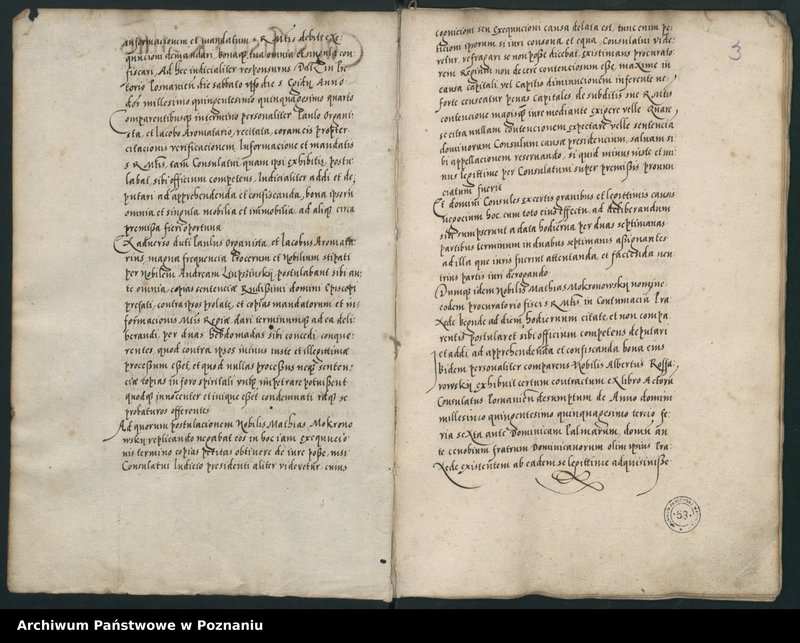 informacionem et mandatum s. R. Mtis debite exe-
qucioni demandari, bonaque sua omnia et singula con-
fiscari. Ad hec iudicialiter responsurus. Dat. in Pre-
torio Posnanien. die sabbato
dor millesimo quingentesimo quinquagesimo quarto
Comparentibusque in termino personaliter Paulo Organi-
sta, et Iacobo Aromatario, recitata, coram eis propter
citacionis verificacionem, Informacione et mandatis
s. R. Mtis, tam Consulatui quam ipsi exhibitis, postu-
labat sibi officium competens, Iudicialiter addi et de-
putari ad apprehendenda et confiscanda, bona ipsoru
omnia et singula mobilia et immobilia, ad aliaque circa
premissa fieri oportuna
Ex adverso dicti Paulus Organista, et Iacobus Aromata-
rius, magna frequencia Procerum et Nobilium stipati
per Nobilem Andream Lupssinskij, postulabant sibi an-
te omnia, copias sentenciae Rndissimi domini Episcopi
prefati, contra ipsos prolate, et copias mandatorum et in-
formacionis Mtis Regiae, dari terminumque ad ea deli-
berandi, per duas hebdomadas sibi concedi, conque-
rentes, quod contra ipsos minus iuste et illegittime
processum esset, et quod nullas processus neque senten-
ciae copias in foro spirituali impetrare potuissent
quodque innocenter et inique essent condemnati idque se
probaturos offerentes
Ad quorum postulacionem Nobilis Mathias Mokrono
wskij replicando negabat eos in hoc iam exequucio
nis termino copias petitas obtinere de iure posse, nisi
Consulatui Iudicio presidenti aliter videretur, cuius
3
cognicioni seu Exequucioni causa delata est, tunc enim pe-
ticioni ipsorum si iuri consona et equa Consulatui vide-
retur, refragari se non posse dicebat, existimans procurato-
rem Regium non decere contenciosum esse, maxime in
causa capitali, vel Capitis diminucionem inferente ne
forte censeatur penas Capitales de subditis sue R. Mtis
contencione magisque iure mediante exigere velle. Quare
se citra ullam contencionem expectare velle sentencia
dominorum Consulum causae presidencium, salvam si-
bi appellacionem reservando, si quid minus iuste et mi-
nus legittime per Consulatum super premissis pronun
ciatum fuerit
Et domini Consules ex certis gravibus et legittimis causis
negocium hoc, cum toto eius effectu, ad deliberandum
sibi sumpserunt a data hodierna per duas septimanas
partibus terminum in duabus septimanis assignantes
ad illa que iuris fuerint attentanda, et facienda neu
trius partis iuri derogando
Dumque idem Nobilis Mathias Mokronowskij nomine
eodem procuratorio fisci s. R. Mtis in Contumaciam Pra
xede ad diem hodiernum citate, et non compa
rentis postularet sibi officium competens deputari
et addi, ad apprehendenda et confiscanda bona eius
ibidem personaliter comparens Nobilis Albertus Rossa-
rowskij exhibuit certum contractum ex libro Actoru
Consulatus Posnaniensi desumptum de Anno domini
millesimo quingentesimo quinquagesimo tercio fe-
ria sexta ante Dominicam Palmarum, domu an
te cenobium fratrum Dominicanorum olim ipsius Pra-
xede existentem ab eadem se legittime adquisivisse
53
Archiwum Państwowe w Poznaniu